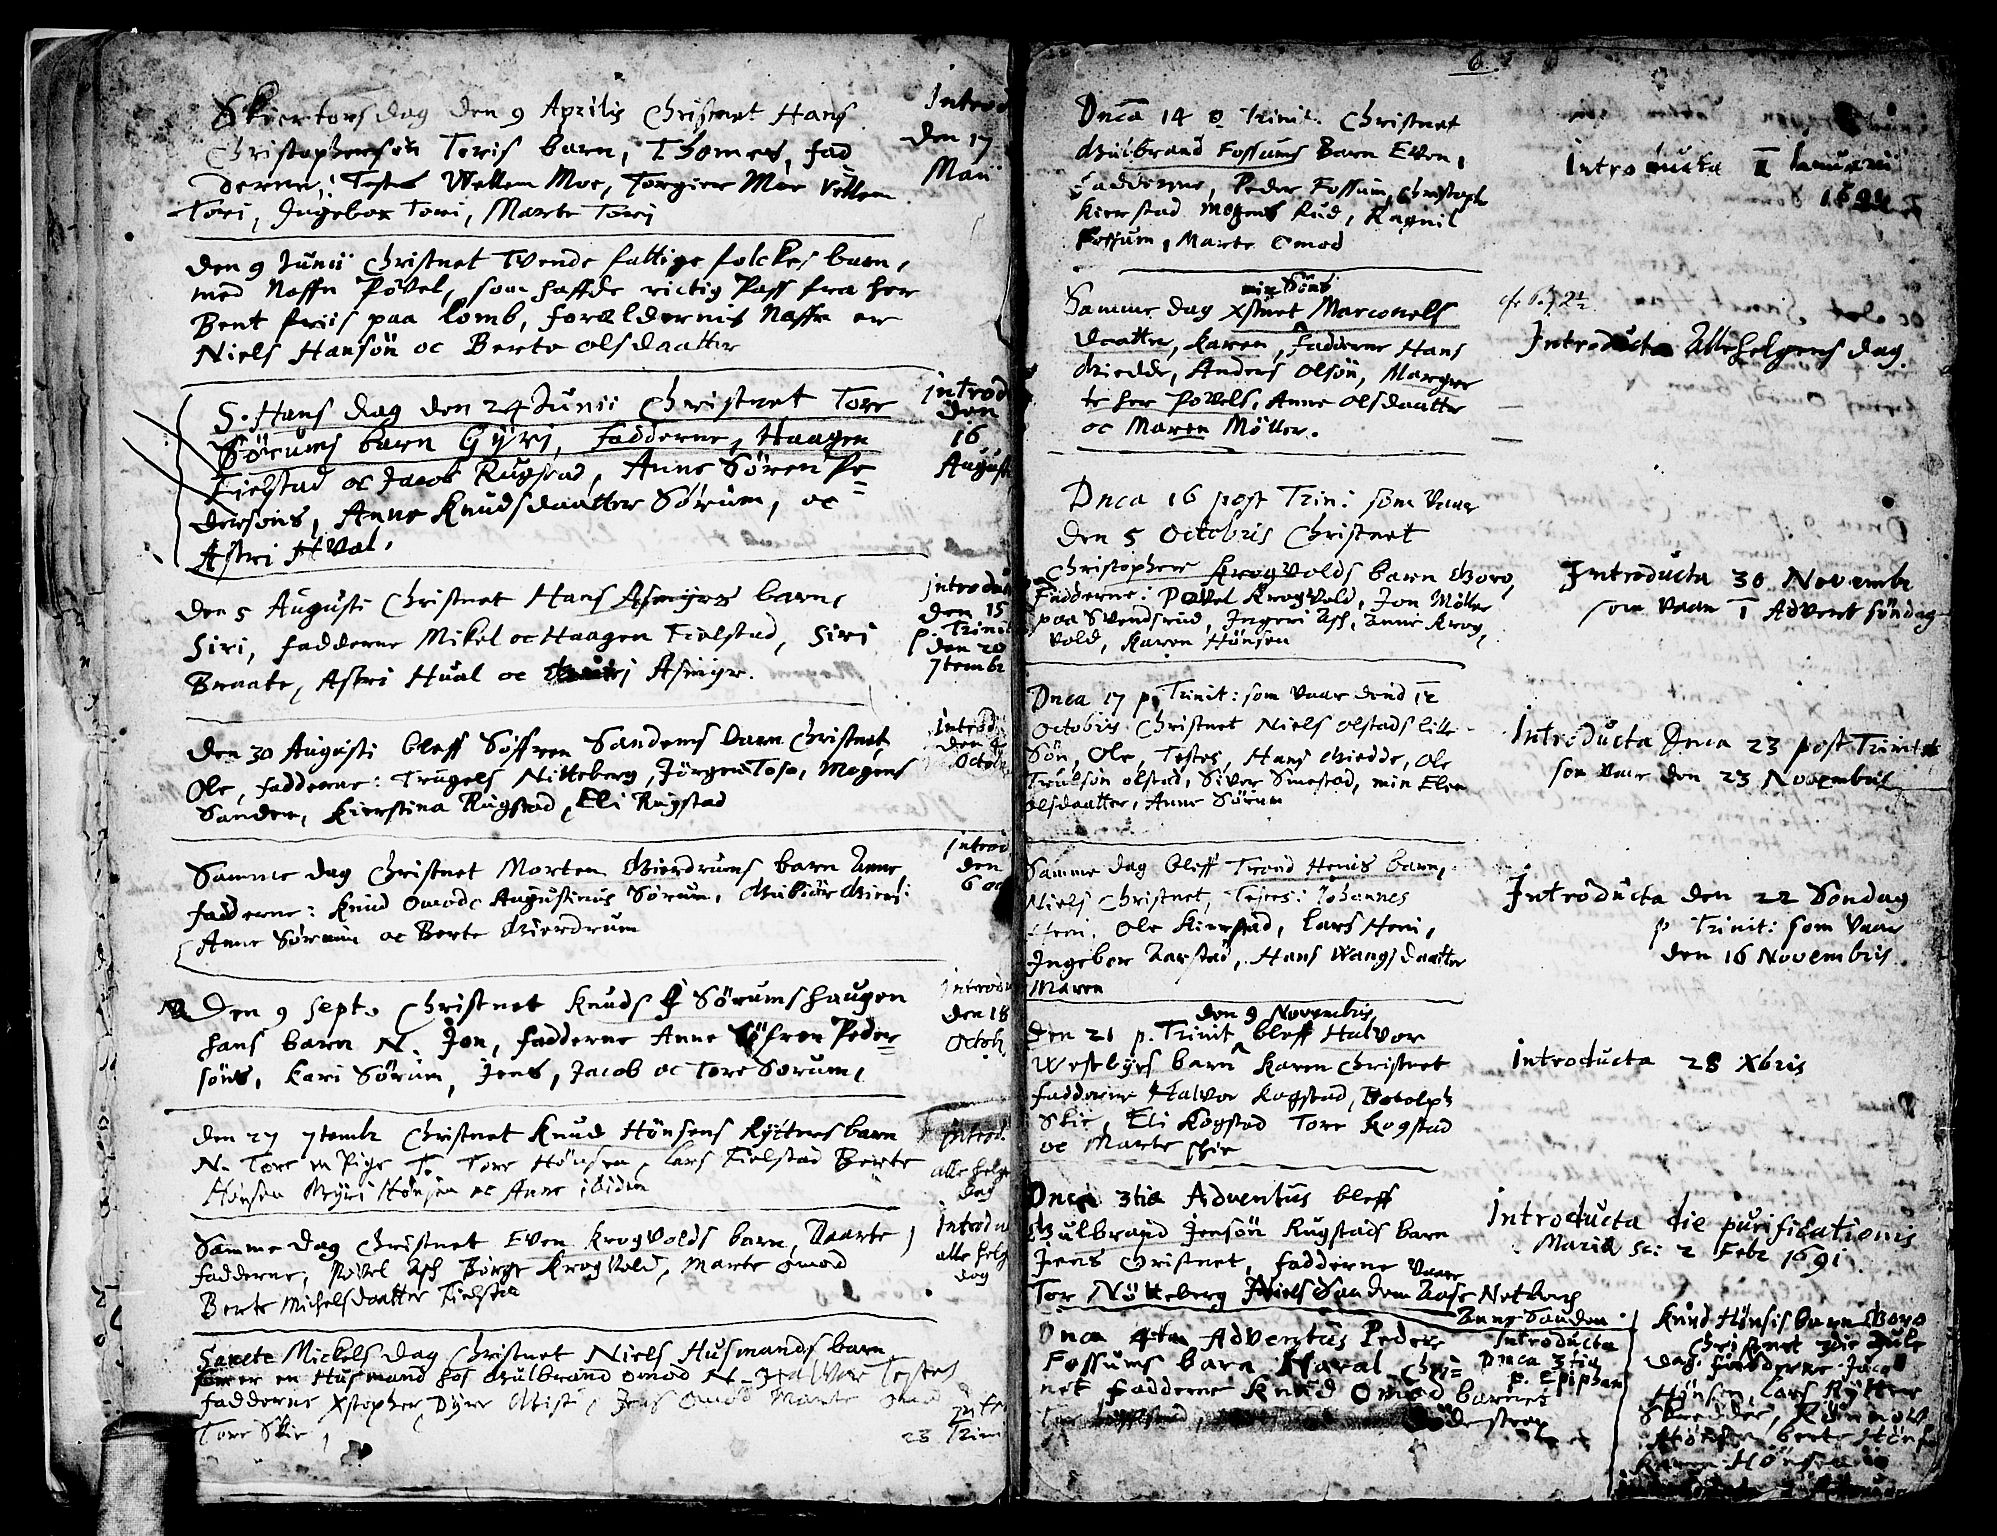 Skiertorsdag den 9 Aprilis Christnet Hans
Christophersön Toris barn, Thomes, fad
derne: Testes Vettem Moe, Torgier Moe Vettem
Tori, Ingebor Tori, Marte Tori
Introd
den 17
Maii
den 9 Junii Christnet Tvende fattige folckes barn,
med Naffn Povel, som haffde rictig Pass fra her
Bent friis paa Lomb, foræeldernis Naffn er
Niels Hansön oc Berte olsdaatter
S. Hans dag den 24 Junii Christnet Tore
Sörums barn Gyri, Fadderne, Haagen
Fielstad oc Jacob Rugstad, Anne Sören Pe=
dersöns, Anne Knudsdaatter Sørum, oc
Astri Hval.
introd
den
16
August
den 5 Augusti Christnet Hans Asmyrs barn,
Siri, fadderne Mikel oc Haagen Fielstad, Siri
Braate, Astri Hual oc Asmyr.
introdu
den 15
p. Trinit
den 20
7tembr
den 30 Augusti bleff Söffren Sandems barn Christnet,
Ole, fadderne: Trugels Nitteberg, Jörgen Toso, Mogens
Sanden, Kierstina Rugstad, Eli Rugstad
Introd
den
Octobr
Samme dag Christnet Morten Gierdrums barn Anne
fadderne: Knud Omode Augustinus Sörum,
Anne Sörum oc Berte Gierdrum
introd
den
6 oc
NB. Den 9 Sept. Christnet Knuds Sörumshaugen
hans barn N. Jon, fadderne Anne Söfren Peder=
söns, Kari Sörum, Jens, Jacob oc Tore Sorum,
Introdu
den 18
Octobr
den 27 7tembr Christnet Knud Hönsens Ryttersbarn
N. Tore en Pige T. Tore Hönsen, Lars Fielstad Berte
Hönsen Gyri Hönsen oc Anne ibidem
introd.
alle helge
dag
Samme dag Christnet Even Krogvolds barn, Maarte,
fadderne, Povel Asch Börge Krogvold, Marte Omod
Berte Michelsdaatter Fielstad
Introdu
alle helg
dag
Sancte Mickels dag Christnet Niels Husmands barn
som er en Husmand hos Gulbrand Omod N. Halvor Testes
fadderne Xstopher Dyre Jens Omod Marte Omod
Tore Skie,
intr
23 Trin
6
Dnca 14 p Trinit. Christnet
Gulbrand Fossums Barn Even,
Fadderne, Peder Fossum, Christoph
Kierstad Mogens Rud, Ragnil
Fossum, Marte Omod
Introducta II Januarii
Samme dag Xstnet min Söns Marconels
daatter, Karen, Fadderne Hans
Giedde, Anders Olsön, Margre
te her Povels, Anne Olsdaatter
oc Maren Möller.
Introducta Allehelgens dag.
Dnca 16 post Trin: som vaar
den 5 Octobris Christnet
Christopher Krogvolds barn Goro,
Fadderne: Povel Krogvold, Jon Möller
paa Svendsrud, Ingeri Asch, Anne Krog,
vold, Karen Hönsen
Introducta 30 Novembr
som vaar I Advent söndag
Dnca 17 p. Trinit: som vaar dend 12
Octobris Christnet Niels Olstads lille
Sön, Ole, Testes, Hans Giedde, Ole
Truelsön Olstad, Siver Smestad, min Elen
Olsdaatter, Anne Sörum
Introducta Dnca 23 post Trinitat
som vaar den 23 Novembris
Samme dag bleff Trond Henis barn,
Niels Christnet, Testes: Johannes
Heni, Ole Kierstad, Lars Heni,
Ingebor Aarstad, Hans Wangs daatter
Maren
Introducta den 22 Söndag
p Trinit: som vaar
den 16 Novembris
den 9 Novembris
Den 21 p. Trinit bleff Halvor
Westbyes barn Karen Christnet
fadderne Halvor Kogstad, Botolph
Skie, Eli Kogstad Tore Kogstad
oc Marte Schie
Introducta 28 Xbris
Dnca 3tia Adventus bleff
Gulbrand Jensön Rugstads barn
Jens Christnet, fadderne vaar
Tor Nötteberg Niels Sandem Aase Netberg
Anne Sanden
Introducta die purificationis
Mariæ sc: 2 Febr 1691
Dnca 4ta Adventus Peder
Fossums barn Haral Chri=
net Fadderne Knud Omod barnet
döde strax
Introducta
Dnca 3tia
p. Epiphan
Knud Hönsis barn Goro
Christnet 3die Jule
dag. fadderne Jacob
Hönsen Lars Rytter
Skredder, Rönnov
Hönsen, berte Hönse
Karen Hönsen